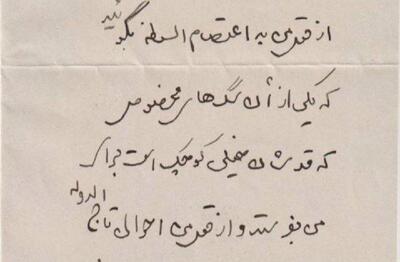 از قول من به اعتصام السلطنه بگوئید
که یکی از آن سگ های مخصوص
که قدشان خیلی کوچک است برای
من بفرستد و از قول من احوالی تاج الدوله